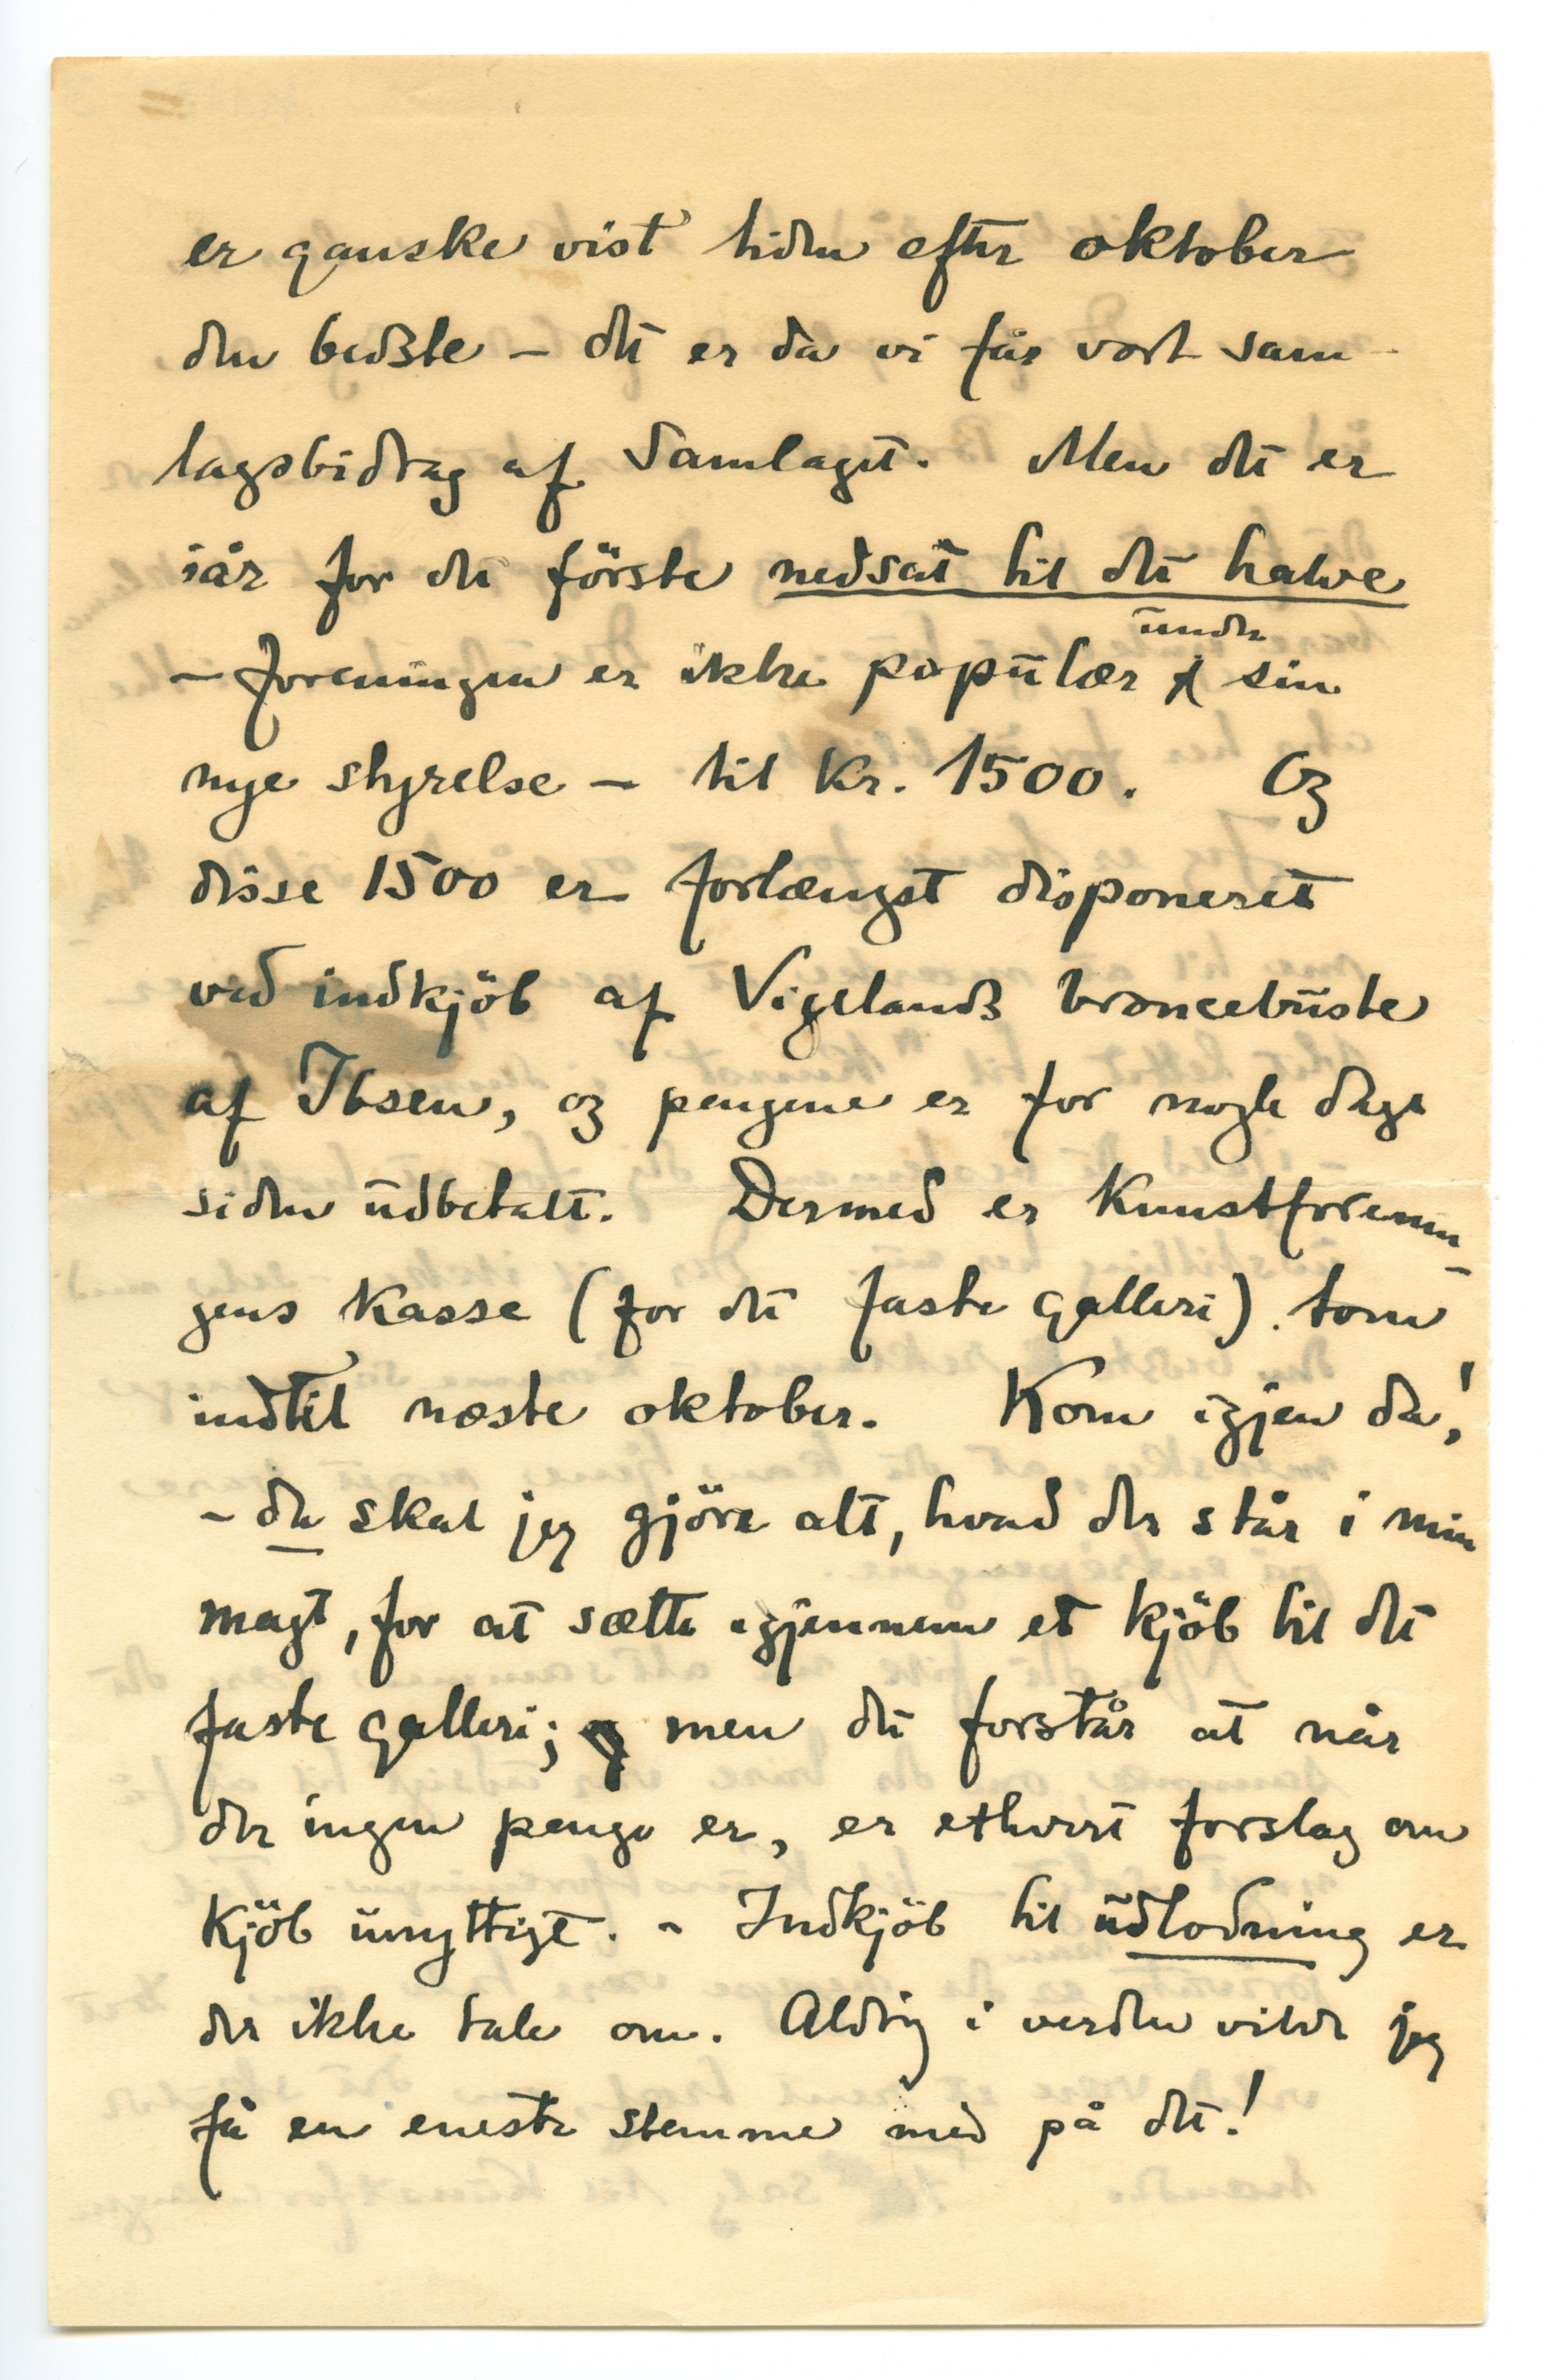 er ganske vist tiden efter oktober
den bedste – det er da vi får vort sam-
lagsbidrag af Samlaget. Men det er
iår for det første nedsat til det halve
– foreningen er ikke populær under sin
nye styrelse – til Kr. 1500. Og
disse 1500 er forlængst disponeret
ved indkjöb af Vigelands broncebüste
af Ibsen, og pengene er for nogle dage
siden üdbetalt. Dermed er Kunstforenin-
gens Kasse (for det faste galleri) tom
indtil næste oktober. Kom igjen da!
– da skal jeg gjöre alt, hvad der står i min
magt, for at sætte igjennem et kjöb til det
faste galleri; men dü forstår at når
der ingen penge er, er ethvert forslag om
Kjöb ünyttigt. – Indkjöb til üdlodning er
der ikke tale om. Aldrig i verden vilde jeg
få en eneste stemme med på det!